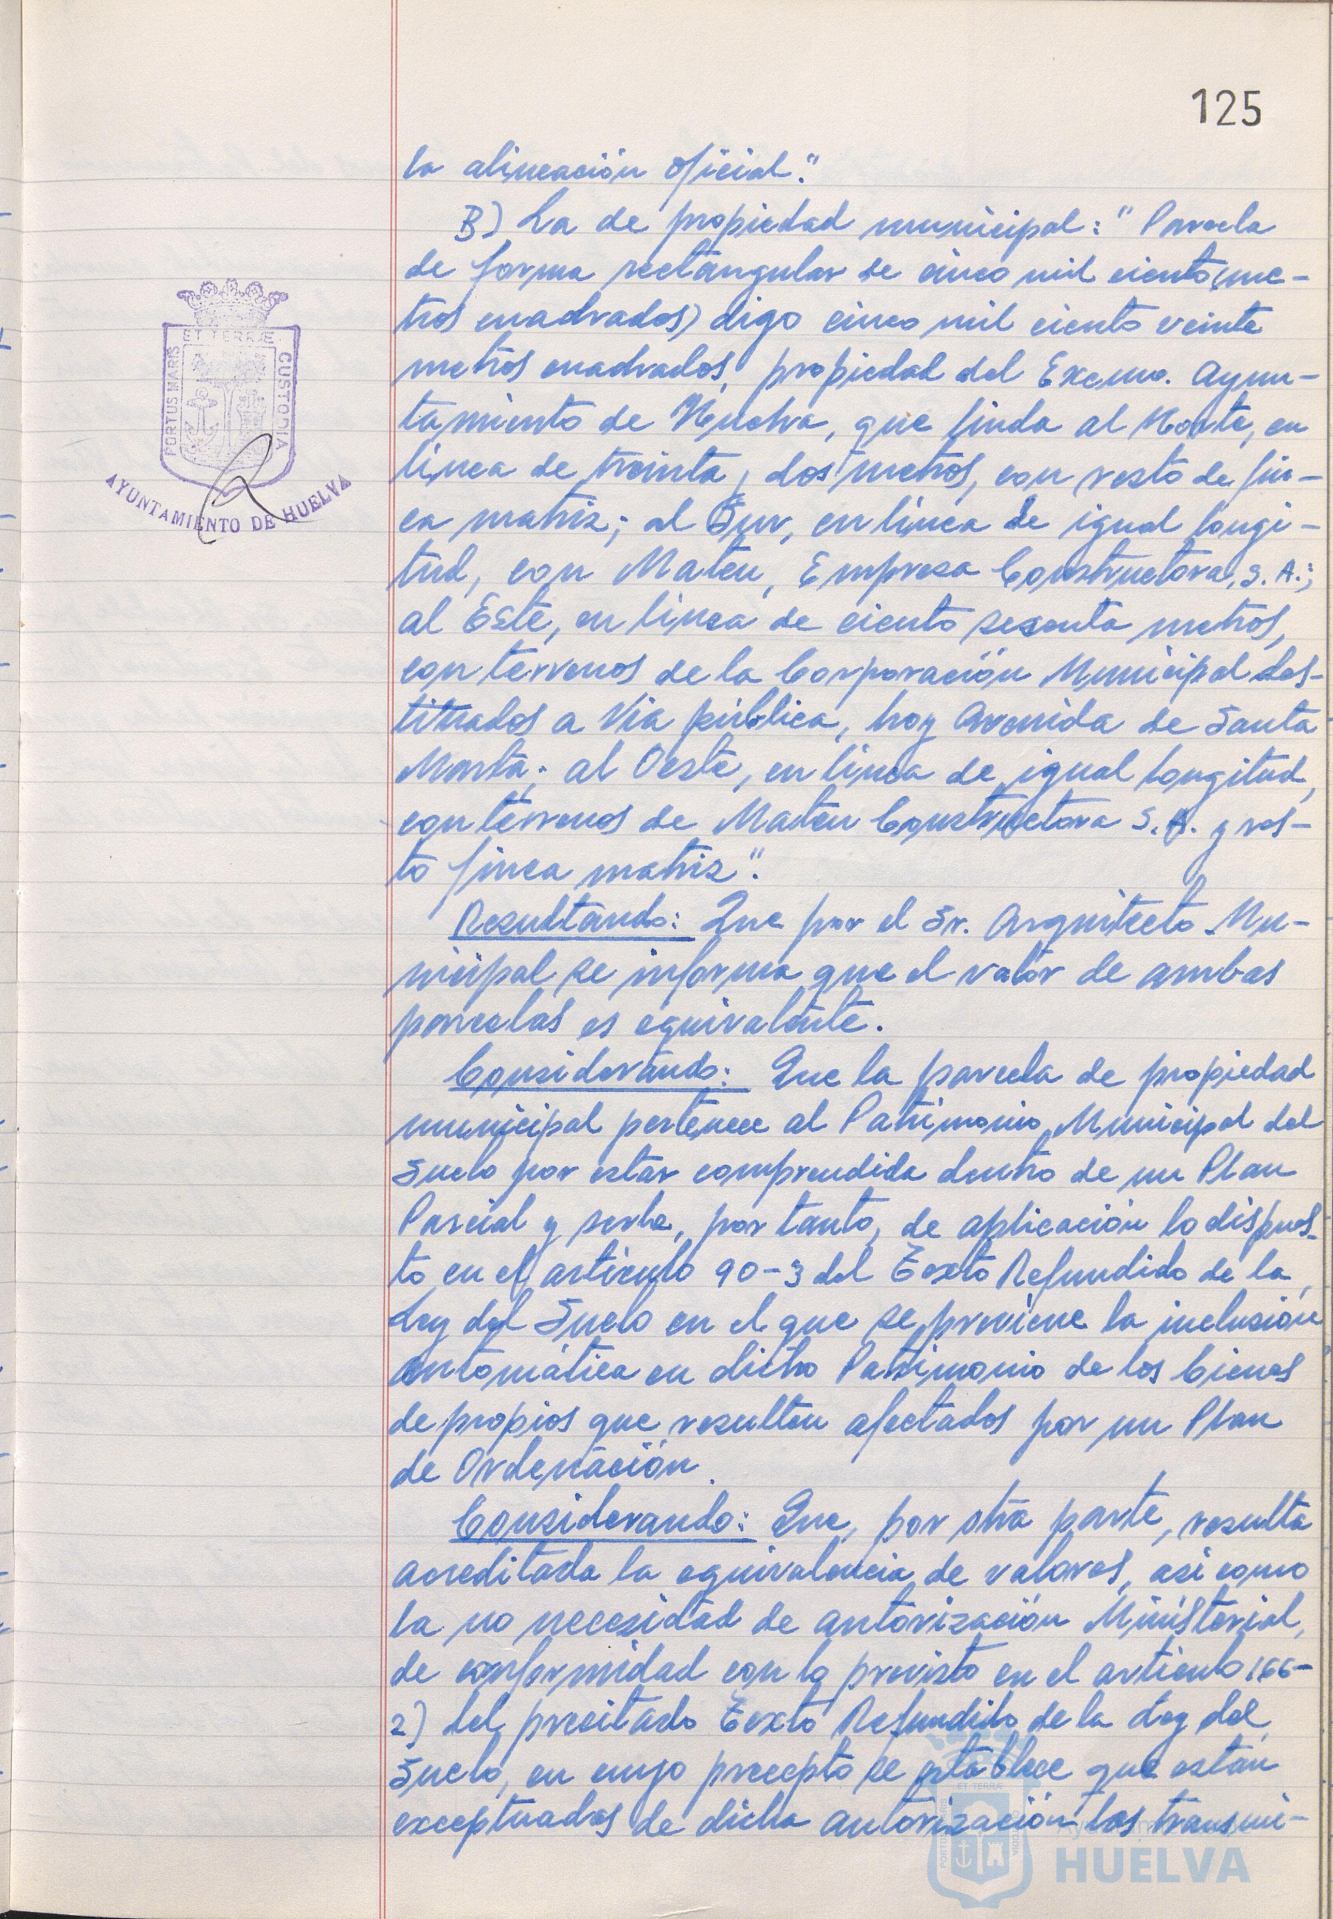 125
la alineación oficial."
B) La de propiedad municipal: "Parcela
de forma rectangular de cinco mil ciento (me-
tros cuadrados) digo cinco mil ciento veinte
metros cuadrados, propiedad del Excmo. Ayun-
tamiento de Huelva, que linda al Norte, en
línea de treinta y dos metros, con resto de fin-
ca matriz; al Sur, en línea de igual longi-
tud, con Mateu, Empresa Constructora, S.A.;
al Este, en línea de ciento sesenta metros,
con terrenos de la Corporación Municipal des-
tinados a Vía pública, hoy Avenida de Santa
Marta; al Oeste, en línea de igual longitud,
con terrenos de Mateu Constructora S.A. y res-
to finca matriz".
Resultando: Que por el Sr. Arquitecto Mu-
nicipal se informa que el valor de ambas
parcelas es equivalente.
Considerando: Que la parcela de propiedad
municipal pertenece al Patrimonio Municipal del
Suelo por estar comprendida dentro de un Plan
Parcial y serla, por tanto, de aplicación lo dispues-
to en el artículo 90-3 del Texto Refundido de la
Ley del Suelo en el que se previene la inclusión
automática en dicho Patrimonio de los bienes
de propios que resulten afectados por un Plan
de Ordenación.
Considerando: Que, por otra parte, resulta
acreditada la equivalencia de valores, así como
la no necesidad de autorización Ministerial,
de conformidad con lo previsto en el artículo 166-
2) del precitado Texto Refundido de la Ley del
Suelo, en cuyo precepto se establece que están
exceptuadas de dicha autorización las transmi-
PORTUS MARIS
ET TERRÆ
CUSTODIA
AYUNTAMIENTO DE HUELVA
HUELVA